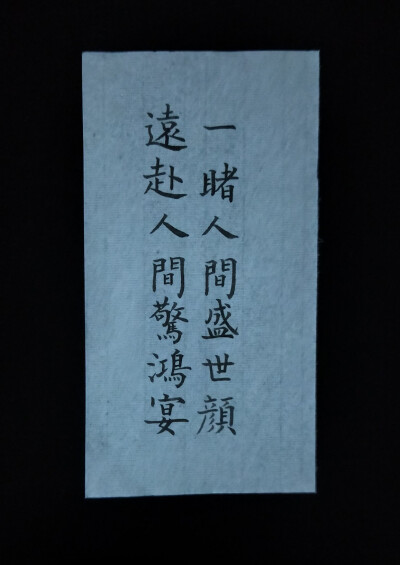 遠赴人間驚鴻宴
一睹人間盛世顔